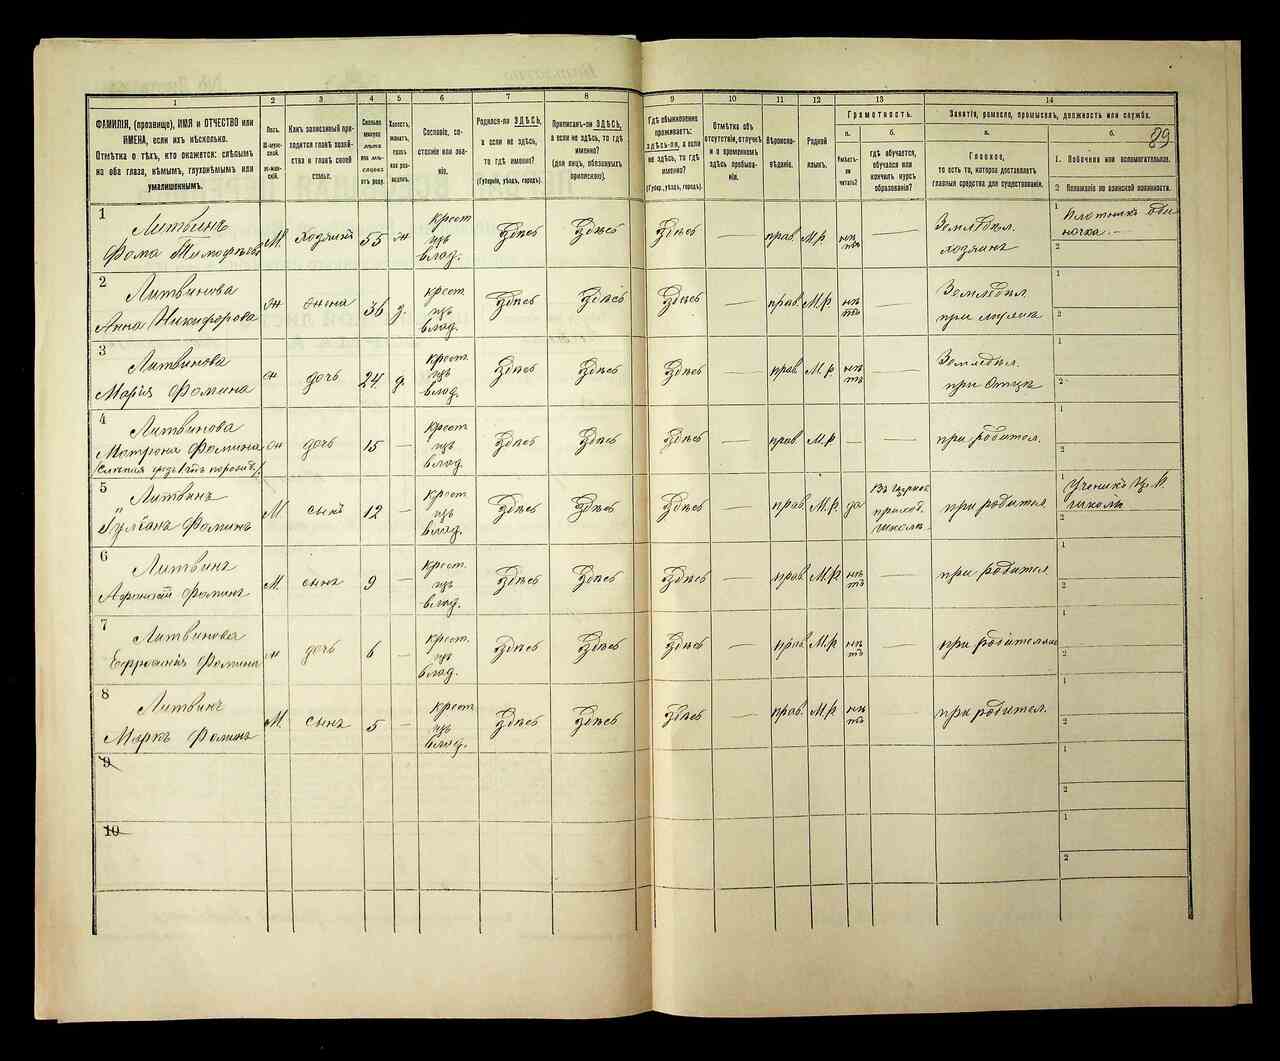 89
1
2
3
4
5
6
7
8
9
10
11
12
13
14
ФАМИЛІЯ, (прозвище), ИМЯ и ОТЧЕСТВО или
ИМЕНА, если ихъ нѣсколько.
Отмѣтка о тѣхъ, кто окажется: слѣпымъ
на оба глаза, нѣмымъ, глухонѣмымъ или
умалишеннымъ.
Полъ.
М-мужской.
Ж-женскій.
Какъ записанный приходится
главѣ хозяйства
и главѣ своей
семьи.
Сколько
минуло
лѣтъ
или мѣсяцевъ
отъ роду.
Холостъ,
женатъ,
вдовъ
или разведенъ.
Сословіе, состояніе
или званіе.
Родился-ли ЗДѢСЬ,
а если не здѣсь,
то гдѣ именно?
(Губернія, уѣздъ, городъ).
Приписанъ-ли ЗДѢСЬ,
а если не здѣсь, то гдѣ
именно?
(для лицъ, обязанныхъ
припискою).
Гдѣ обыкновенно
проживаетъ:
здѣсь-ли, а если
не здѣсь, то гдѣ
именно?
(Губер.,уѣздъ,городъ).
Отмѣтка объ
отсутствіи, отлучкѣ
и о временномъ
здѣсь пребываніи.
Вѣроисповѣданіе.
Родной
языкъ.
Грамотность.
а.
Умѣетъ-ли
читать?
б.
гдѣ обучается,
обучался или
кончилъ курсъ
образованія?
Занятіе, ремесло, промыселъ, должность или служба.
а.
Главное,
то есть то, которое доставляетъ
главныя средства для существованія.
б.
1. Побочное или вспомогательное.
2 Положеніе по воинской повинности.
1
Литвинъ
Фома Тимофѣевъ
М
хозяинъ
55
ж
крест
изъ
влад.
Здѣсь
Здѣсь
Здѣсь
—
прав.
М.р.
нѣтъ
—
Земледѣл.
хозяинъ
1
Плотникъ одиночка. —
2
2
Литвинова
Анна Никифорова
ж
жена
36
з.
крест.
изъ
влад.
Здѣсь
Здѣсь
Здѣсь
—
прав.
М.р.
нѣтъ
—
Земледѣл.
при мужѣ
1
2
3
Литвинова
Марія Фомина
ж
дочь
24
д.
крест.
изъ
влад.
Здѣсь
Здѣсь
Здѣсь
—
прав.
М.р.
нѣтъ
—
Земледѣл.
при Отцѣ
1
2
4
Литвинова
Матрона Фомина
ж
дочь
15
—
крест.
изъ
влад.
Здѣсь
Здѣсь
Здѣсь
—
прав.
М.р.
—
—
при родител.
1
2
5
Литвинъ
Гулбанъ Фоминъ
М
сынъ
12
—
крест
изъ
влад.
Здѣсь
Здѣсь
Здѣсь
—
прав.
М.р.
да
Въ церков.
приход.
школѣ
при родител
1
Ученикъ Ц. П.
школы
2
6
Литвинъ
Афанасій Фоминъ
М.
сынъ
9
—
крест.
изъ
влад.
Здѣсь
Здѣсь
Здѣсь
—
прав.
М.р
нѣтъ
—
при родител
1
2
7
Литвинова
Ефросинія Фомина
ж
дочь
6
—
крест.
изъ
влад.
Здѣсь
Здѣсь
Здѣсь
—
прав.
М.р
нѣтъ
—
при родителяхъ
1
2
8
Литвинъ
Маркъ Фоминъ
М.
сынъ
5
—
крест
изъ
влад.
Здѣсь
Здѣсь
Здѣсь
—
прав.
М.р.
нѣтъ
—
при родител.
1
2
9
1
2
10
1
2